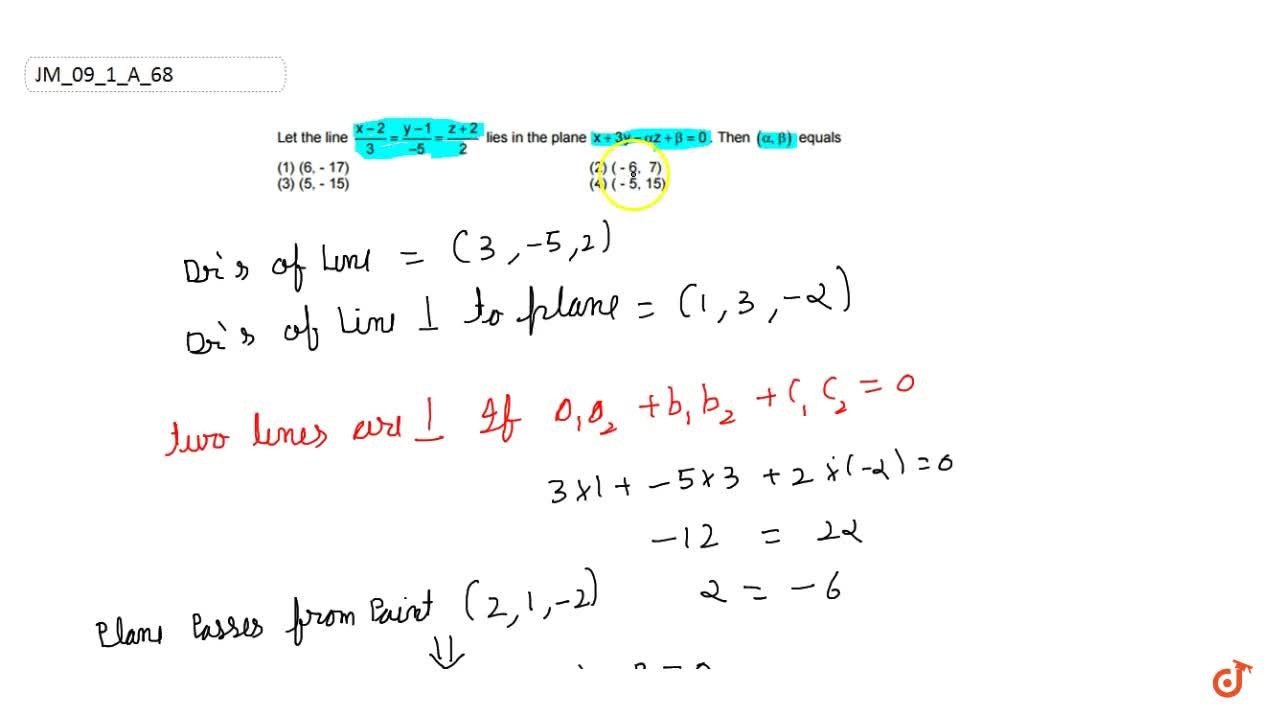 JM_09_1_A_68
Let the line (x−2)/3 = (y−1)/−5 = (z+2)/2 lies in the plane x + 3y − αz + β = 0. Then (α, β) equals
(1) (6, - 17) (2) ( - 6, 7)
(3) (5, - 15) (4) ( - 5, 15)
Dr's of Line = (3, -5, 2)
Dr's of Line ⊥ to plane = (1, 3, -α)
two lines are ⊥ If a₁a₂ + b₁b₂ + c₁c₂ = 0
3×1 + -5×3 + 2×(-α) = 0
-12 = 2α
α = -6
Plane Passes from Point (2, 1, -2)
⇓